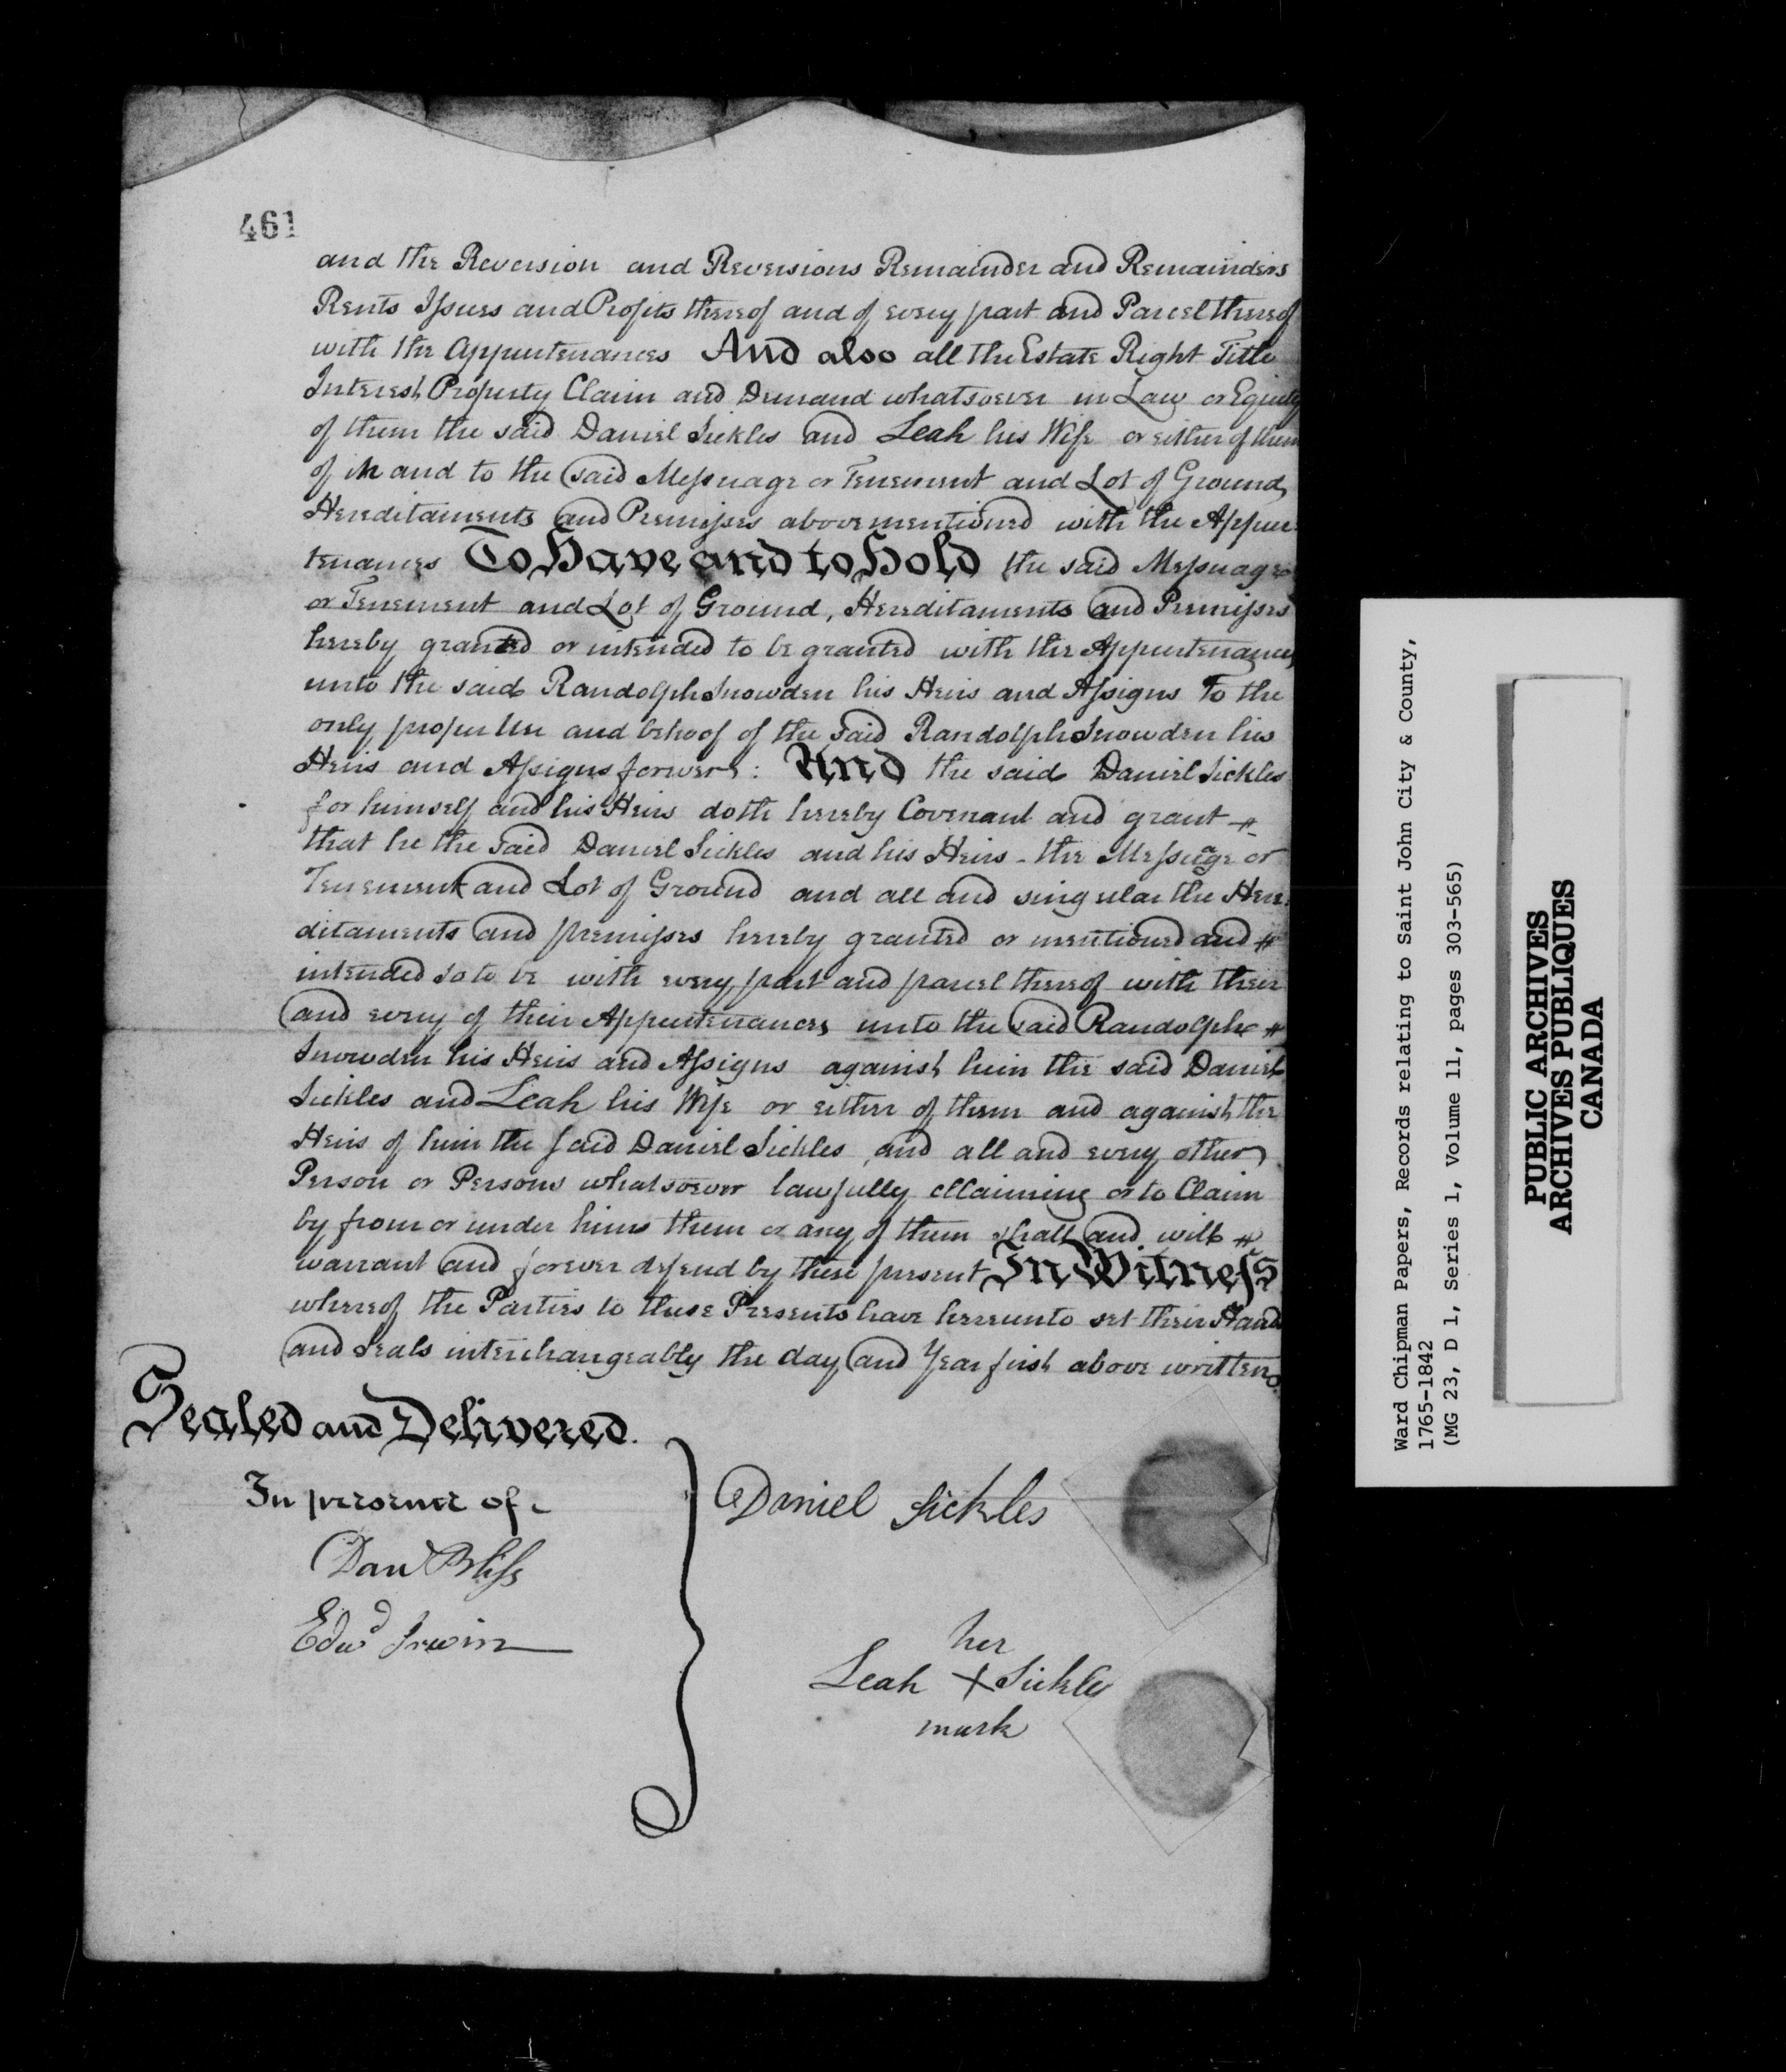 461
and the Reversion and Reversions Remainder and Remainders
Rents Issues and Profits thereof and of every part and Parcel thereof
with the Appurtenances And also all the Estate Right Title
Interest, Property Claim and Demand whatsoever in Law or Equity
of them the said Daniel Sickles and Leah his Wife or either of them
of in and to the said Messuage or Tenement and Lot of Ground,
Hereditaments and Premisses above mentioned with the Appur-
tenances To Have and to Hold the said Messuage
or Tenement and Lot of Ground, Hereditaments and Premisses
hereby granted or intended to be granted with the Appurtenances
unto the said Randolph Snowden his Heirs and Assigns To the
only proper Use and behoof of the said Randolph Snowden his
Heirs and Assigns forever: And the said Daniel Sickles
for himself and his Heirs doth hereby Covenant and grant
that he the said Daniel Sickles and his Heirs - the Messuage or
Tenement and Lot of Ground and all and singular the Here-
ditaments and premisses hereby granted or mentioned and
intended so to be with every part and parcel thereof with their
and every of their Appurtenances unto the said Randolph
Snowden his Heirs and Assigns against him the said Daniel
Sickles and Leah his Wife or either of them and against the
Heirs of him the said Daniel Sickles, and all and every other
Person or Persons whatsoever lawfully Claiming or to Claim
by from or under him them or any of them shall and will
warrant and forever defend by these present In Witness
whereof the Parties to these Presents have hereunto set their Hands
and Seals interchangeably the day and Year first above written.
Sealed and Delivered.
In presence of
Danl Bliss
Edwd Irwin
Daniel Sickles
her
Leah X Sickles
mark
Ward Chipman Papers, Records relating to Saint John City & County,
1765-1842
(MG 23, D 1, Series 1, Volume 11, pages 303-565)
PUBLIC ARCHIVES
ARCHIVES PUBLIQUES
CANADA